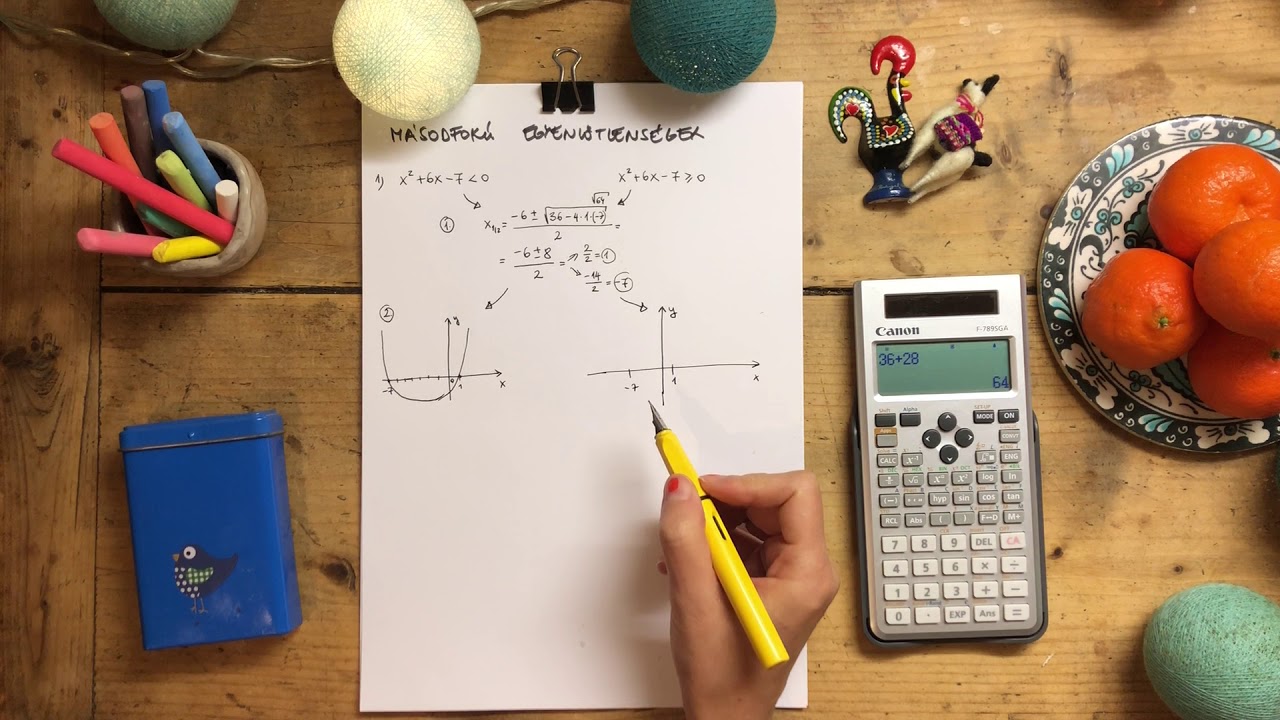 MÁSODFOKÚ EGYENLŐTLENSÉGEK
1) x²+6x-7<0 x²+6x-7≥0
√64
① x₁/₂= (-6±√(36-4·1·(-7)))/2 =
= (-6±8)/2 = 2/2=①
-14/2=-7
②
y y
-7 0 1 x -7 1 x
Canon F-789SGA
36+28
64
Shift Alpha SET-UP MODE ON
Apps CONVT
CALC x⁻¹ ENG
√ log ln
(−) hyp sin cos tan
RCL Abs ( ) F↔D M+
7 8 9 DEL CA
4 5 6 × ÷
1 2 3 + −
0 · EXP Ans =